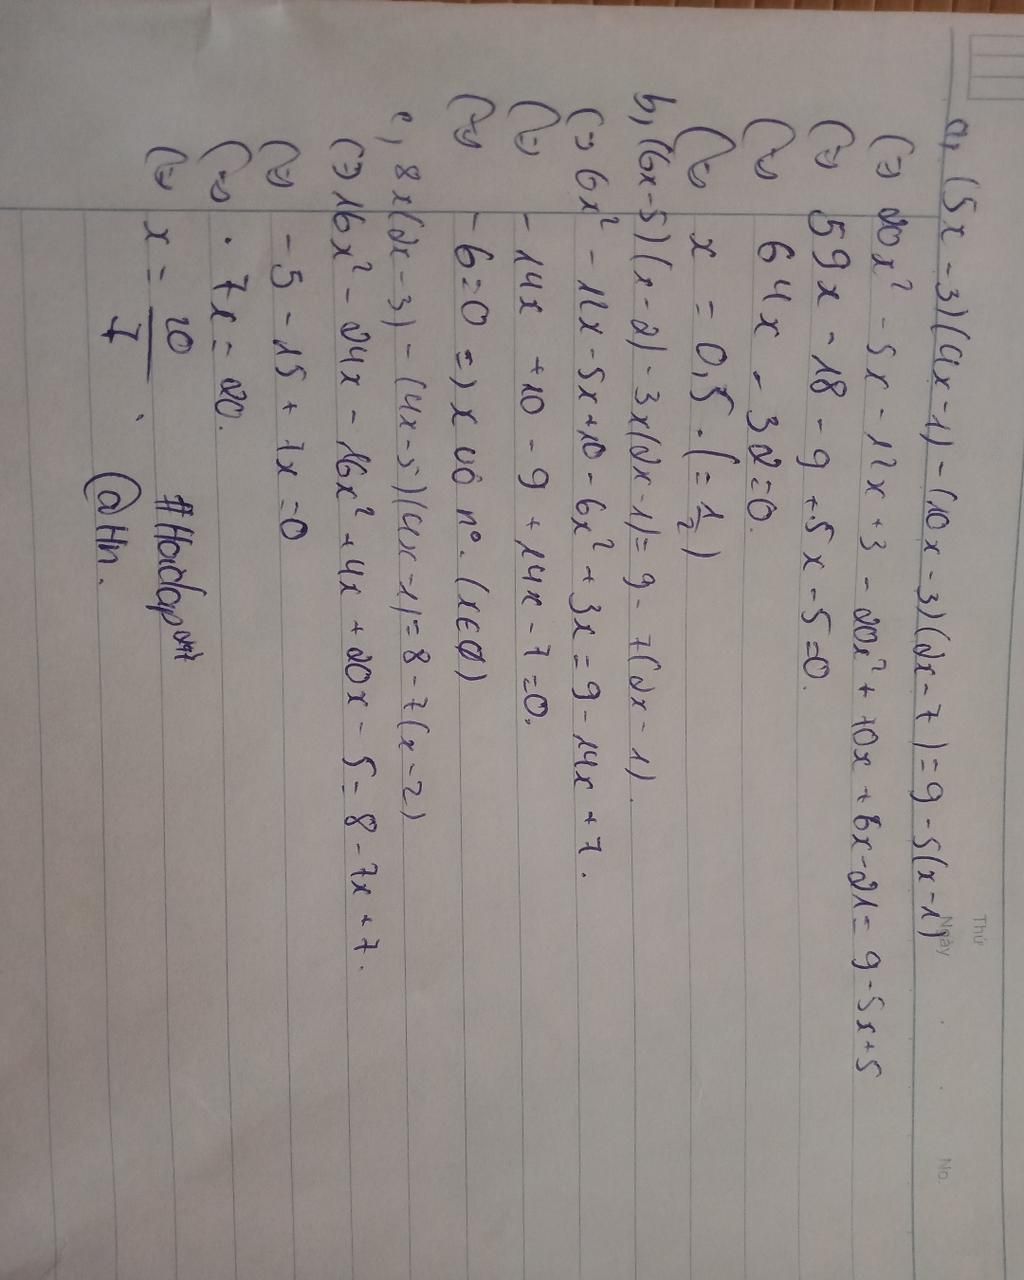 Thứ
Ngày
No.
a, (5x - 3)(4x - 1) - (10x - 3)(2x - 7) = 9 - 5(x - 1)
(=) 20x² - 5x - 12x + 3 - 20x² + 70x + 6x - 21 = 9 - 5x + 5
(=) 59x - 18 - 9 + 5x - 5 = 0.
(=) 64x - 32 = 0.
(=) x = 0,5 . (= 1/2)
b, (6x - 5)(x - 2) - 3x(2x - 1) = 9 - 7(2x - 1).
(=) 6x² - 12x - 5x + 10 - 6x² + 3x = 9 - 14x + 7.
(=) - 14x + 10 - 9 + 14x - 7 = 0.
(=) - 6 = 0 =) x vô n°. (x ∈ Ø)
c, 8x(2x - 3) - (4x - 5)(4x - 1) = 8 - 7(x - 2)
(=) 16x² - 24x - 16x² + 4x + 20x - 5 = 8 - 7x + 7.
(=) - 5 - 15 + 7x = 0
(=) . 7x = 20.
(=) x = 20/7 .
@Hn.